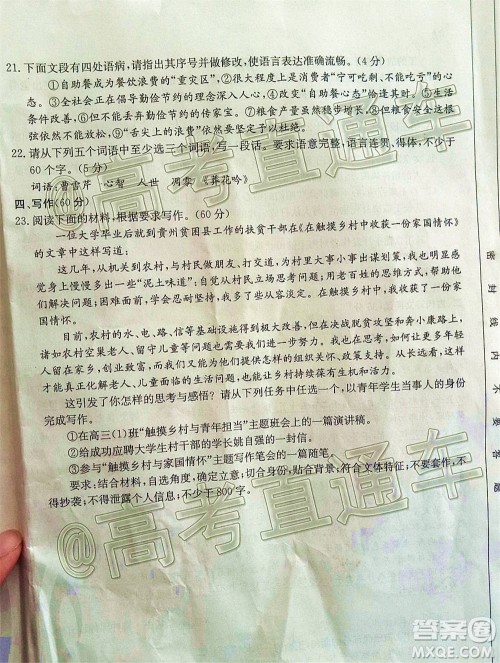 21. 下面文段有四处语病,请指出其序号并做修改,使语言表达准确流畅。(4分)
①自助餐成为餐饮浪费的“重灾区”,②很大程度上是消费者“宁可吃剩、不能吃亏”的心
态。③全社会正在倡导勤俭节约的理念深入人心,④改变“自助餐心态”恰逢其时。⑤生活
条件改善,⑥但也不能忘却勤俭节约的传家宝。⑦粮食产量虽然提高,⑧粮食安全的根本
弦依然不能放松,⑨“舌尖上的浪费”应坚决予以杜绝。
22. 请从下列五个词语中至少选三个词语,写一段话。要求语意完整,语言连贯、得体,不少于
60个字。(5分)
词语:曹雪芹 心智 人世 凋零 《葬花吟》
四、写作(60分)
23. 阅读下面的材料,根据要求写作。(60分)
一位大学毕业后就到贵州贫困县工作的扶贫干部在《在触摸乡村中收获一份家国情怀》
的文章中这样写道:
这几年,从机关到农村,与村民做朋友、打交道,为村里大事小事出谋划策,我也从中感
觉身上多了些“泥土味道”;自觉从村民立场思考问题;用老百姓的思维方式,帮助他
们解决问题;困难面前,学会忍耐坚持,我多了一份坚强和乐观。
目前,农村的水、电、路、信等基础设施得到极大改善,但在决战脱贫攻坚、奔小康路上,
农村空巢老人、留守儿童等问题依然存在,我们还需要更多努力和思考,如何让更多年轻
人回归家乡,并能为他们提供怎样的组织关怀、政策支持。从长远来看,越来越多人回来,
才能真正化解老人、儿童面临的生活问题。让乡村持续兴旺和美丽。
这引发了你怎样的思考与感悟?请从下列任务中任选一个,以青年学生当事人的身份
完成写作。
①在高三(1)班“触摸乡村与青年担当”主题班会上的一篇演讲稿。
②给成功应聘大学生村干部的学长姚自强的一封信。
③参与“触摸乡村与家国情怀”主题写作笔会的一篇随笔。
要求:结合材料,自选角度,确定立意;切合身份,贴合背景;符合文体特征;不要套作,不
得抄袭;不得泄露个人信息;不少于800字。
@高考直通车
@高考直通车
密
封
线
内
不
要
答
题
答案圈
MXQE.COM